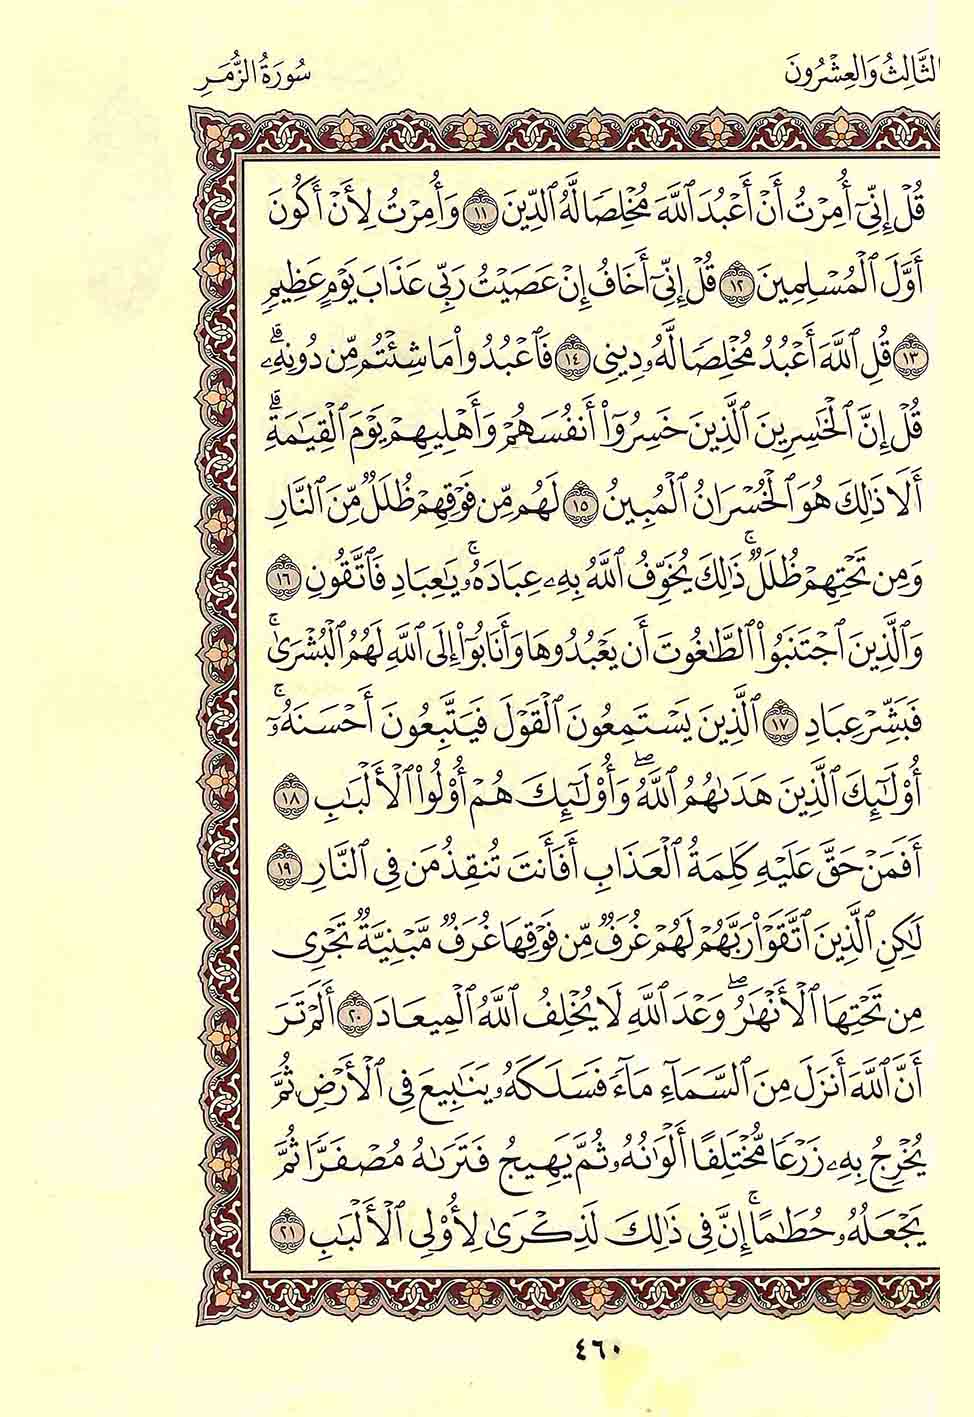 الثَّالِثُ وَالعِشْرُونَ
سُورَةُ الزُّمَرِ
قُلْ إِنِّيٓ أُمِرْتُ أَنْ أَعْبُدَ ٱللَّهَ مُخْلِصًا لَّهُ ٱلدِّينَ ١١ وَأُمِرْتُ لِأَنْ أَكُونَ
أَوَّلَ ٱلْمُسْلِمِينَ ١٢ قُلْ إِنِّيٓ أَخَافُ إِنْ عَصَيْتُ رَبِّي عَذَابَ يَوْمٍ عَظِيمٍ
١٣ قُلِ ٱللَّهَ أَعْبُدُ مُخْلِصًا لَّهُۥ دِينِي ١٤ فَٱعْبُدُوا۟ مَا شِئْتُم مِّن دُونِهِۦۗ
قُلْ إِنَّ ٱلْخَٰسِرِينَ ٱلَّذِينَ خَسِرُوٓا۟ أَنفُسَهُمْ وَأَهْلِيهِمْ يَوْمَ ٱلْقِيَٰمَةِۗ
أَلَا ذَٰلِكَ هُوَ ٱلْخُسْرَانُ ٱلْمُبِينُ ١٥ لَهُم مِّن فَوْقِهِمْ ظُلَلٌ مِّنَ ٱلنَّارِ
وَمِن تَحْتِهِمْ ظُلَلٌۚ ذَٰلِكَ يُخَوِّفُ ٱللَّهُ بِهِۦ عِبَادَهُۥۚ يَٰعِبَادِ فَٱتَّقُونِ ١٦
وَٱلَّذِينَ ٱجْتَنَبُوا۟ ٱلطَّٰغُوتَ أَن يَعْبُدُوهَا وَأَنَابُوٓا۟ إِلَى ٱللَّهِ لَهُمُ ٱلْبُشْرَىٰۚ
فَبَشِّرْ عِبَادِ ١٧ ٱلَّذِينَ يَسْتَمِعُونَ ٱلْقَوْلَ فَيَتَّبِعُونَ أَحْسَنَهُۥٓۚ
أُو۟لَٰٓئِكَ ٱلَّذِينَ هَدَىٰهُمُ ٱللَّهُۖ وَأُو۟لَٰٓئِكَ هُمْ أُو۟لُوا۟ ٱلْأَلْبَٰبِ ١٨
أَفَمَنْ حَقَّ عَلَيْهِ كَلِمَةُ ٱلْعَذَابِ أَفَأَنتَ تُنقِذُ مَن فِي ٱلنَّارِ ١٩
لَٰكِنِ ٱلَّذِينَ ٱتَّقَوْا۟ رَبَّهُمْ لَهُمْ غُرَفٌ مِّن فَوْقِهَا غُرَفٌ مَّبْنِيَّةٌ تَجْرِي
مِن تَحْتِهَا ٱلْأَنْهَٰرُۖ وَعْدَ ٱللَّهِ لَا يُخْلِفُ ٱللَّهُ ٱلْمِيعَادَ ٢٠ أَلَمْ تَرَ
أَنَّ ٱللَّهَ أَنزَلَ مِنَ ٱلسَّمَآءِ مَآءً فَسَلَكَهُۥ يَنَٰبِيعَ فِي ٱلْأَرْضِ ثُمَّ
يُخْرِجُ بِهِۦ زَرْعًا مُّخْتَلِفًا أَلْوَٰنُهُۥ ثُمَّ يَهِيجُ فَتَرَىٰهُ مُصْفَرًّا ثُمَّ
يَجْعَلُهُۥ حُطَٰمًاۚ إِنَّ فِي ذَٰلِكَ لَذِكْرَىٰ لِأُو۟لِي ٱلْأَلْبَٰبِ ٢١
٤٦٠